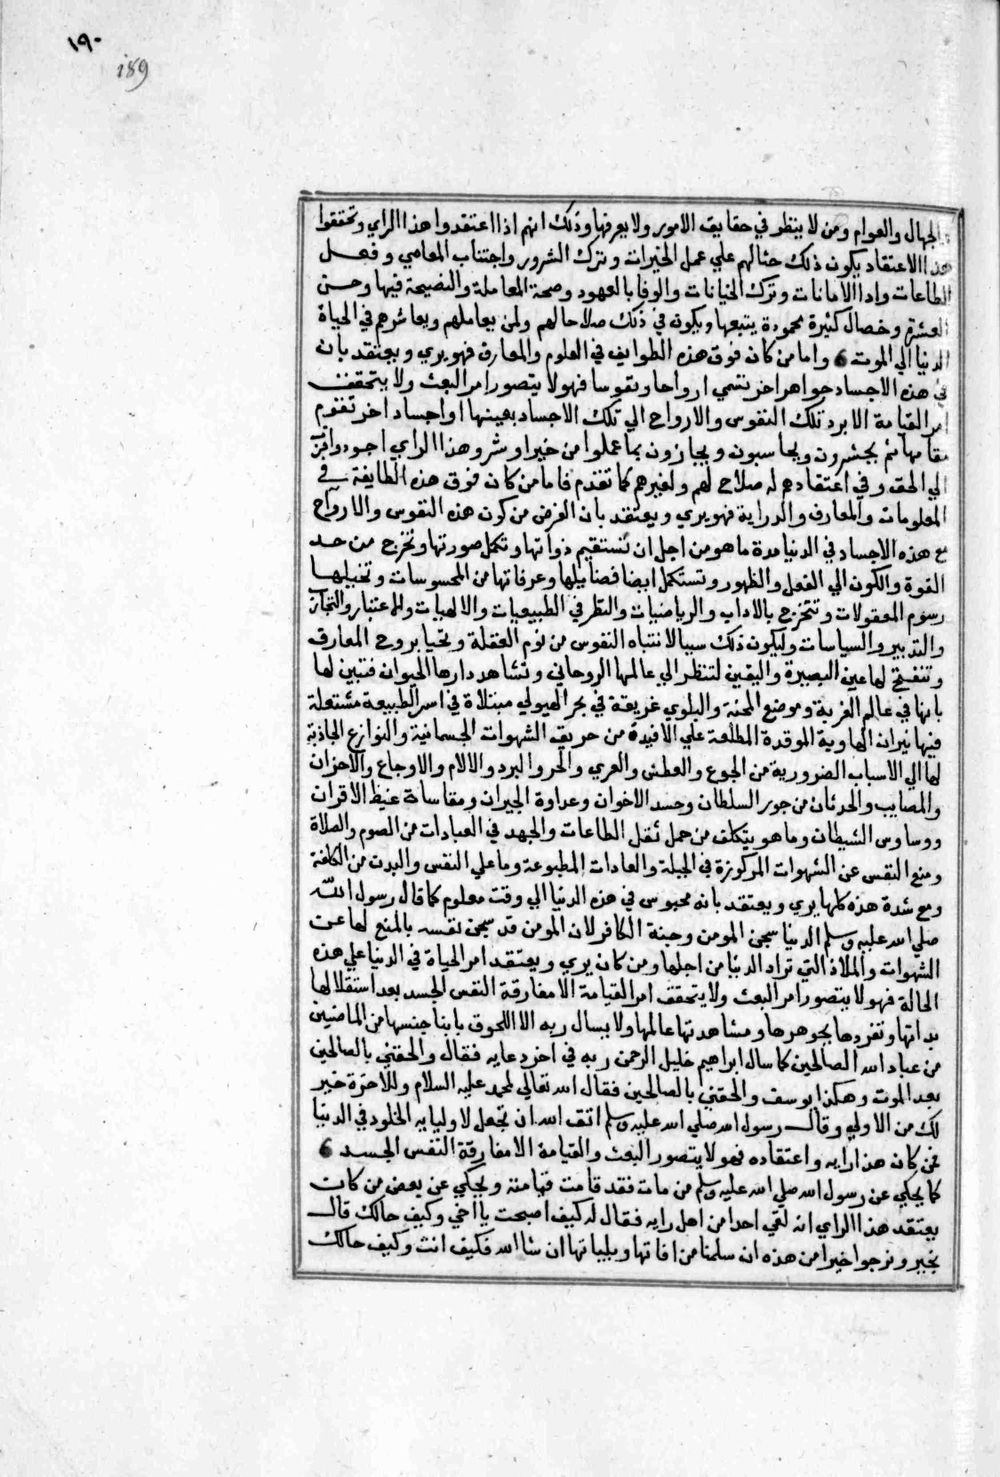 ١٩٠
189
والجهال والعوام ومن لا ينظر في حقايق الامور ولا يعرفها وذلك انهم اذا اعتقدوا هذا الراي وتحققوا
هذا الاعتقاد يكون ذلك حثا لهم علي عمل الخيرات وترك الشرور واجتناب المعاصي وفعل
الطاعات وادا الامانات وترك الخيانات والوفا بالعهود وصحة المعاملة والنصيحة فيها وحسن
العشرة وخصال كثيرة محمودة يتبعها ويكون في ذلك صلاحا لهم ولمن يعاملهم ويعاشرهم في الحياة
الدنيا الي الموت 6 واما من كان فوق هذه الطوايف في العلوم والمعارف فهو يري ويعتقد بان
في هذه الاجساد جواهرا اخر تسمي ارواحا ونفوسا فهو لا يتصور امر البعث ولا يتحقق
امر القيامة الا برد تلك النفوس والارواح الي تلك الاجساد بعينها او اجساد اخر تقوم
مقامها ثم يحشرون ويحاسبون ويجازون بما عملوا من خير او شر وهذا الراي اجود واقرب
الي الحق وفي اعتقادهم له صلاح لهم ولغيرهم كما تقدم فاما من كان فوق هذه الطايفة في
المعلومات والمعارف والدراية فهو يري ويعتقد بان الغرض من كون هذه النفوس والارواح
مع هذه الاجساد في الدنيا مدة ما هو من اجل ان تستقيم ذواتها وتكمل صورتها وتخرج من حد
القوة والكون الي الفعل والظهور وتستكمل ايضا فضايلها وعرفاتها من المحسوسات وتخيلها
رسوم المعقولات وتتخرج بالاداب والرياضيات والنظر في الطبيعيات والالهيات والاعتبار والتجارب
والتدبير والسياسات وليكون ذلك سببا لانتباه النفوس من نوم الغفلة وتحيا بروح المعارف
وتنفتح لها عين البصيرة واليقين لتنظر الي عالمها الروحاني وتشاهد دارها الحيوان فتبين لها
بانها في عالم الغربة وموضع المحنة والبلوي غريقة في بحر الهيولي مبتلاة في اسر الطبيعة مشتعلة
فيها نيران الهاوية الموقدة المطلعة علي الافيدة من حريق الشهوات الجسمانية والنوازع الجاذبة
لها الي الاسباب الضرورية من الجوع والعطش والعري والحر والبرد والالام والاوجاع والاحزان
والمصايب والحدثان من جور السلطان وحسد الاخوان وعداوة الجيران ومقاساة غيظ الاقران
ووساوس الشيطان وما هو يتكلف من حمل ثقل الطاعات والجهد في العبادات من الصوم والصلاة
ومنع النفس عن الشهوات المركوزة في الجبلة والعادات المطبوعة وما علي النفس والبدن من الكلفة
ومع شدة هذه كلها يري ويعتقد بانه محبوس في هذه الدنيا الي وقت معلوم كما قال رسول الله
صلي الله عليه وسلم الدنيا سجن المومن وجنة الكافر لان المومن قد سجن نفسه بالمنع لها عن
الشهوات والملاذ التي تراد الدنيا من اجلها ومن كان يري ويعتقد امر الحياة في الدنيا علي هذه
الحالة فهو لا يتصور امر البعث ولا يتحقق امر القيامة الا مفارقة النفس الجسد بعد استقلالها
بذاتها وتفردها بجوهرها ومشاهدتها عالمها ولا يسال ربه الا اللحوق بابنا جنسها من الماضيين
من عباد الله الصالحين كما سال ابراهيم خليل الرحمن ربه في اخر دعايه فقال والحقني بالصالحين
بعد الموت وهكذا يوسف والحقني بالصالحين فقال الله تعالي لمحمد عليه السلام وللاخرة خير
لك من الاولي وقال رسول الله صلي الله عليه وسلم اتق الله ان تجعل لاوليايه الخلود في الدنيا
فمن كان هذا رايه واعتقاده فهو لا يتصور البعث والقيامة الا مفارقة النفس الجسد 6
كما يحكي عن رسول الله صلي الله عليه وسلم من مات فقد قامت قيامته ويحكي عن بعض من كان
يعتقد هذا الراي انه لقي احدا من اهل رايه فقال له كيف اصبحت يا اخي وكيف حالك قال
بخير ونرجوا خيرا من هذه ان سلمنا من افاتها وبلياتها ان شا الله فكيف انت وكيف حالك